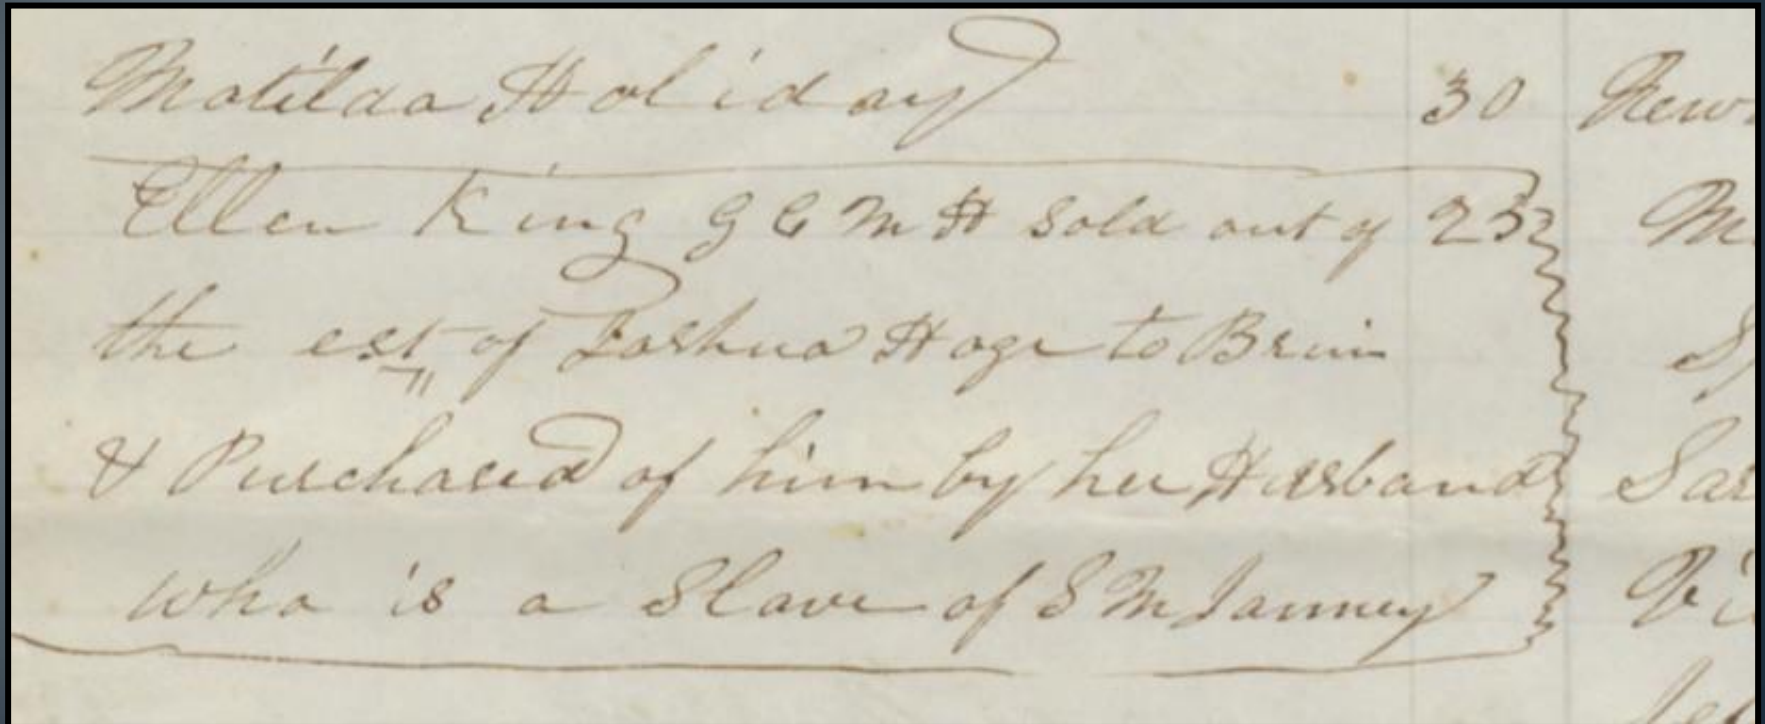 Matilda Holiday 30 New
Ellen King G C M H sold out of 23
the est of Joshua Hoge to Brim
& Purchased of him by her Husband
who is a Slave of S M Janney